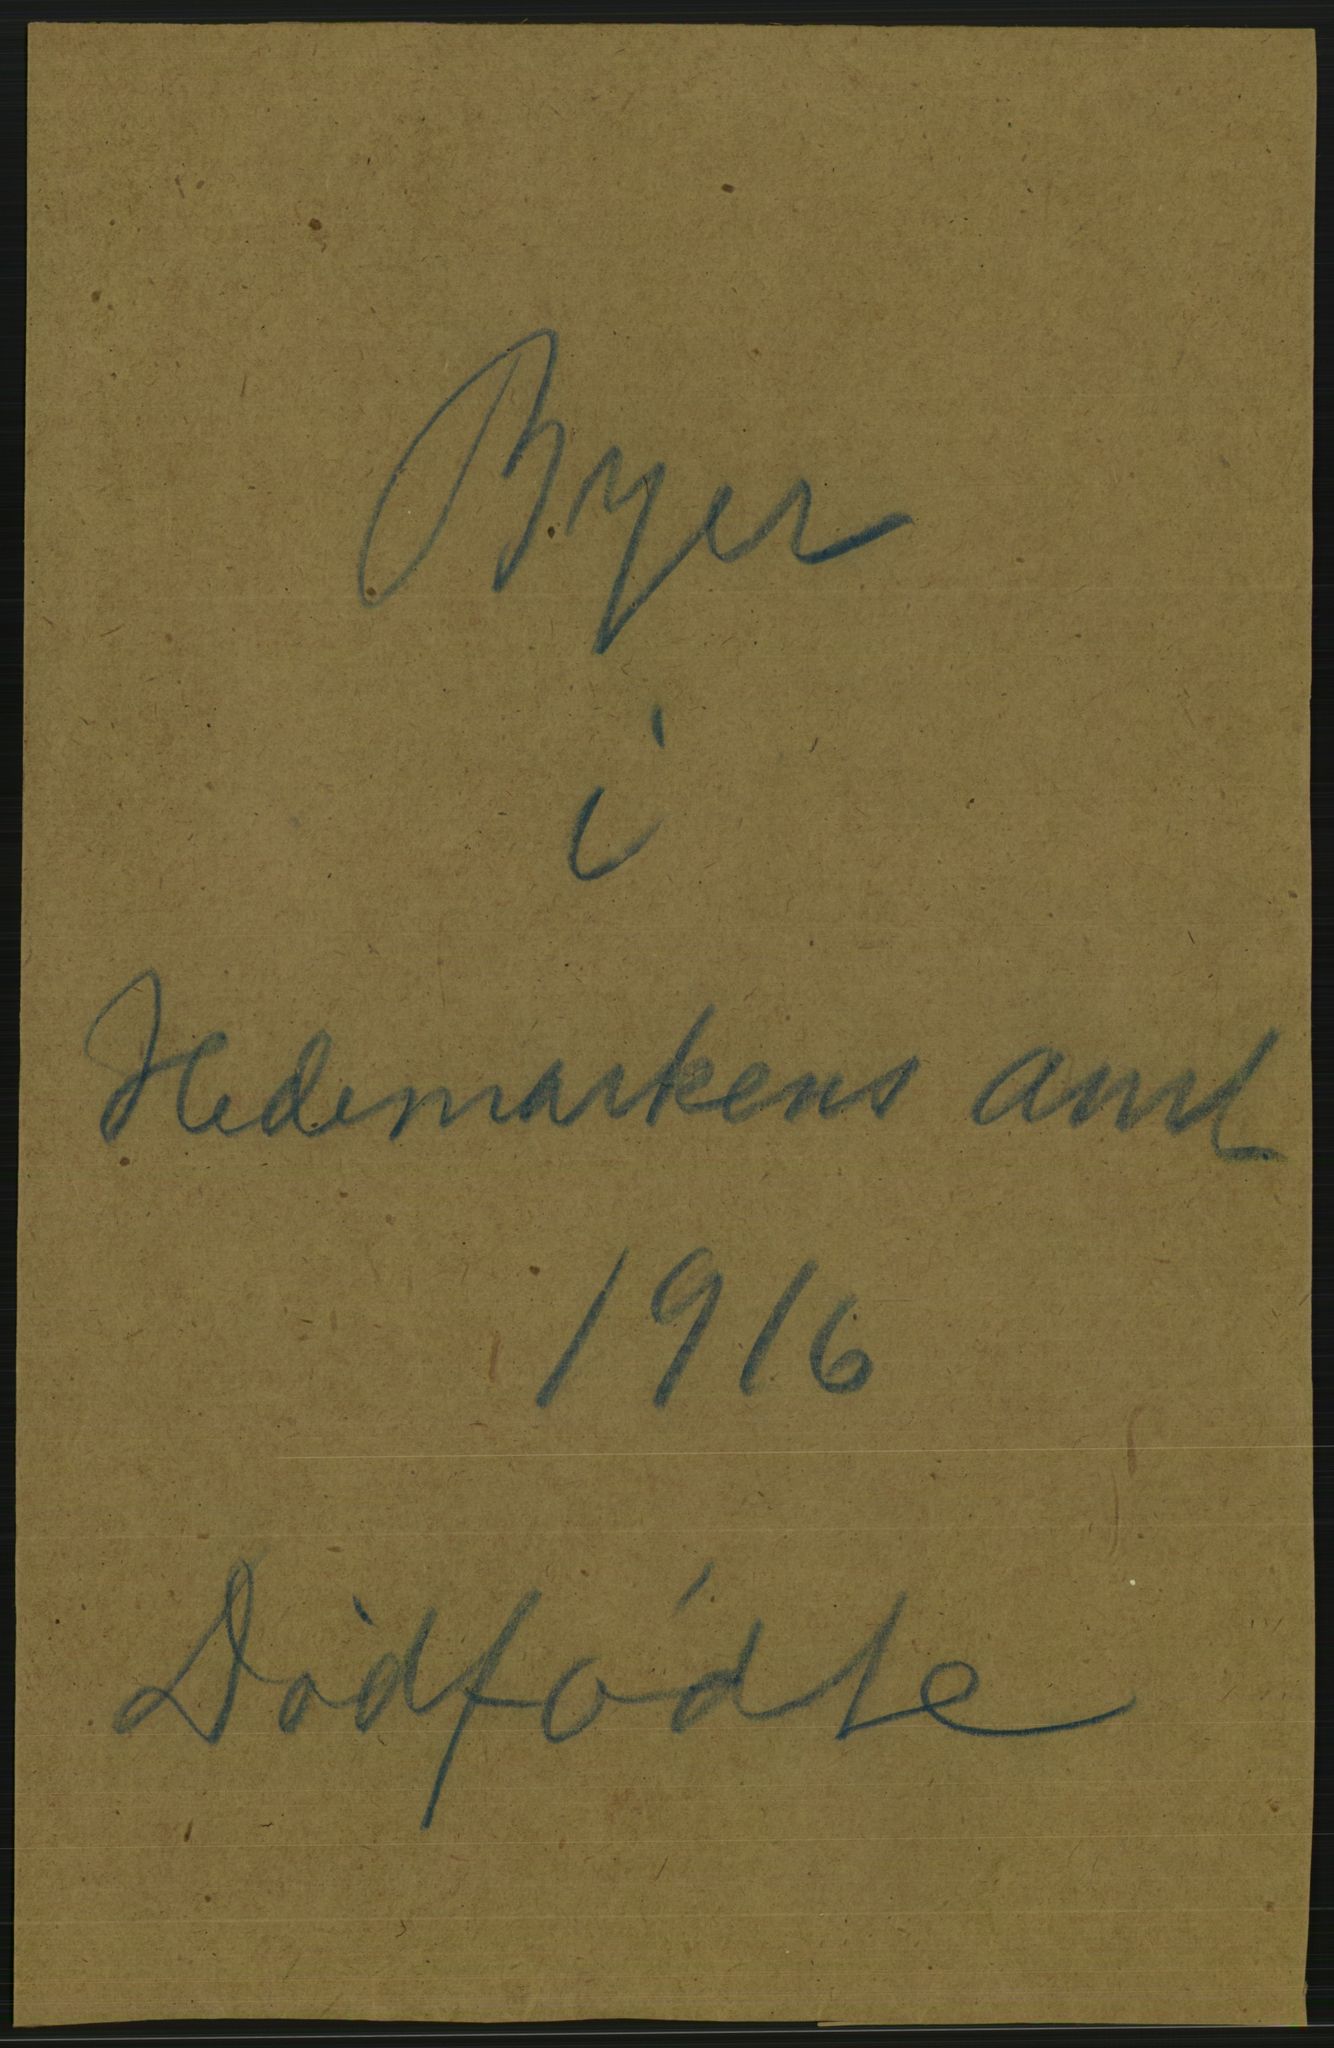 Byer
i
Hedemarkens amt
1916
Dødfødte